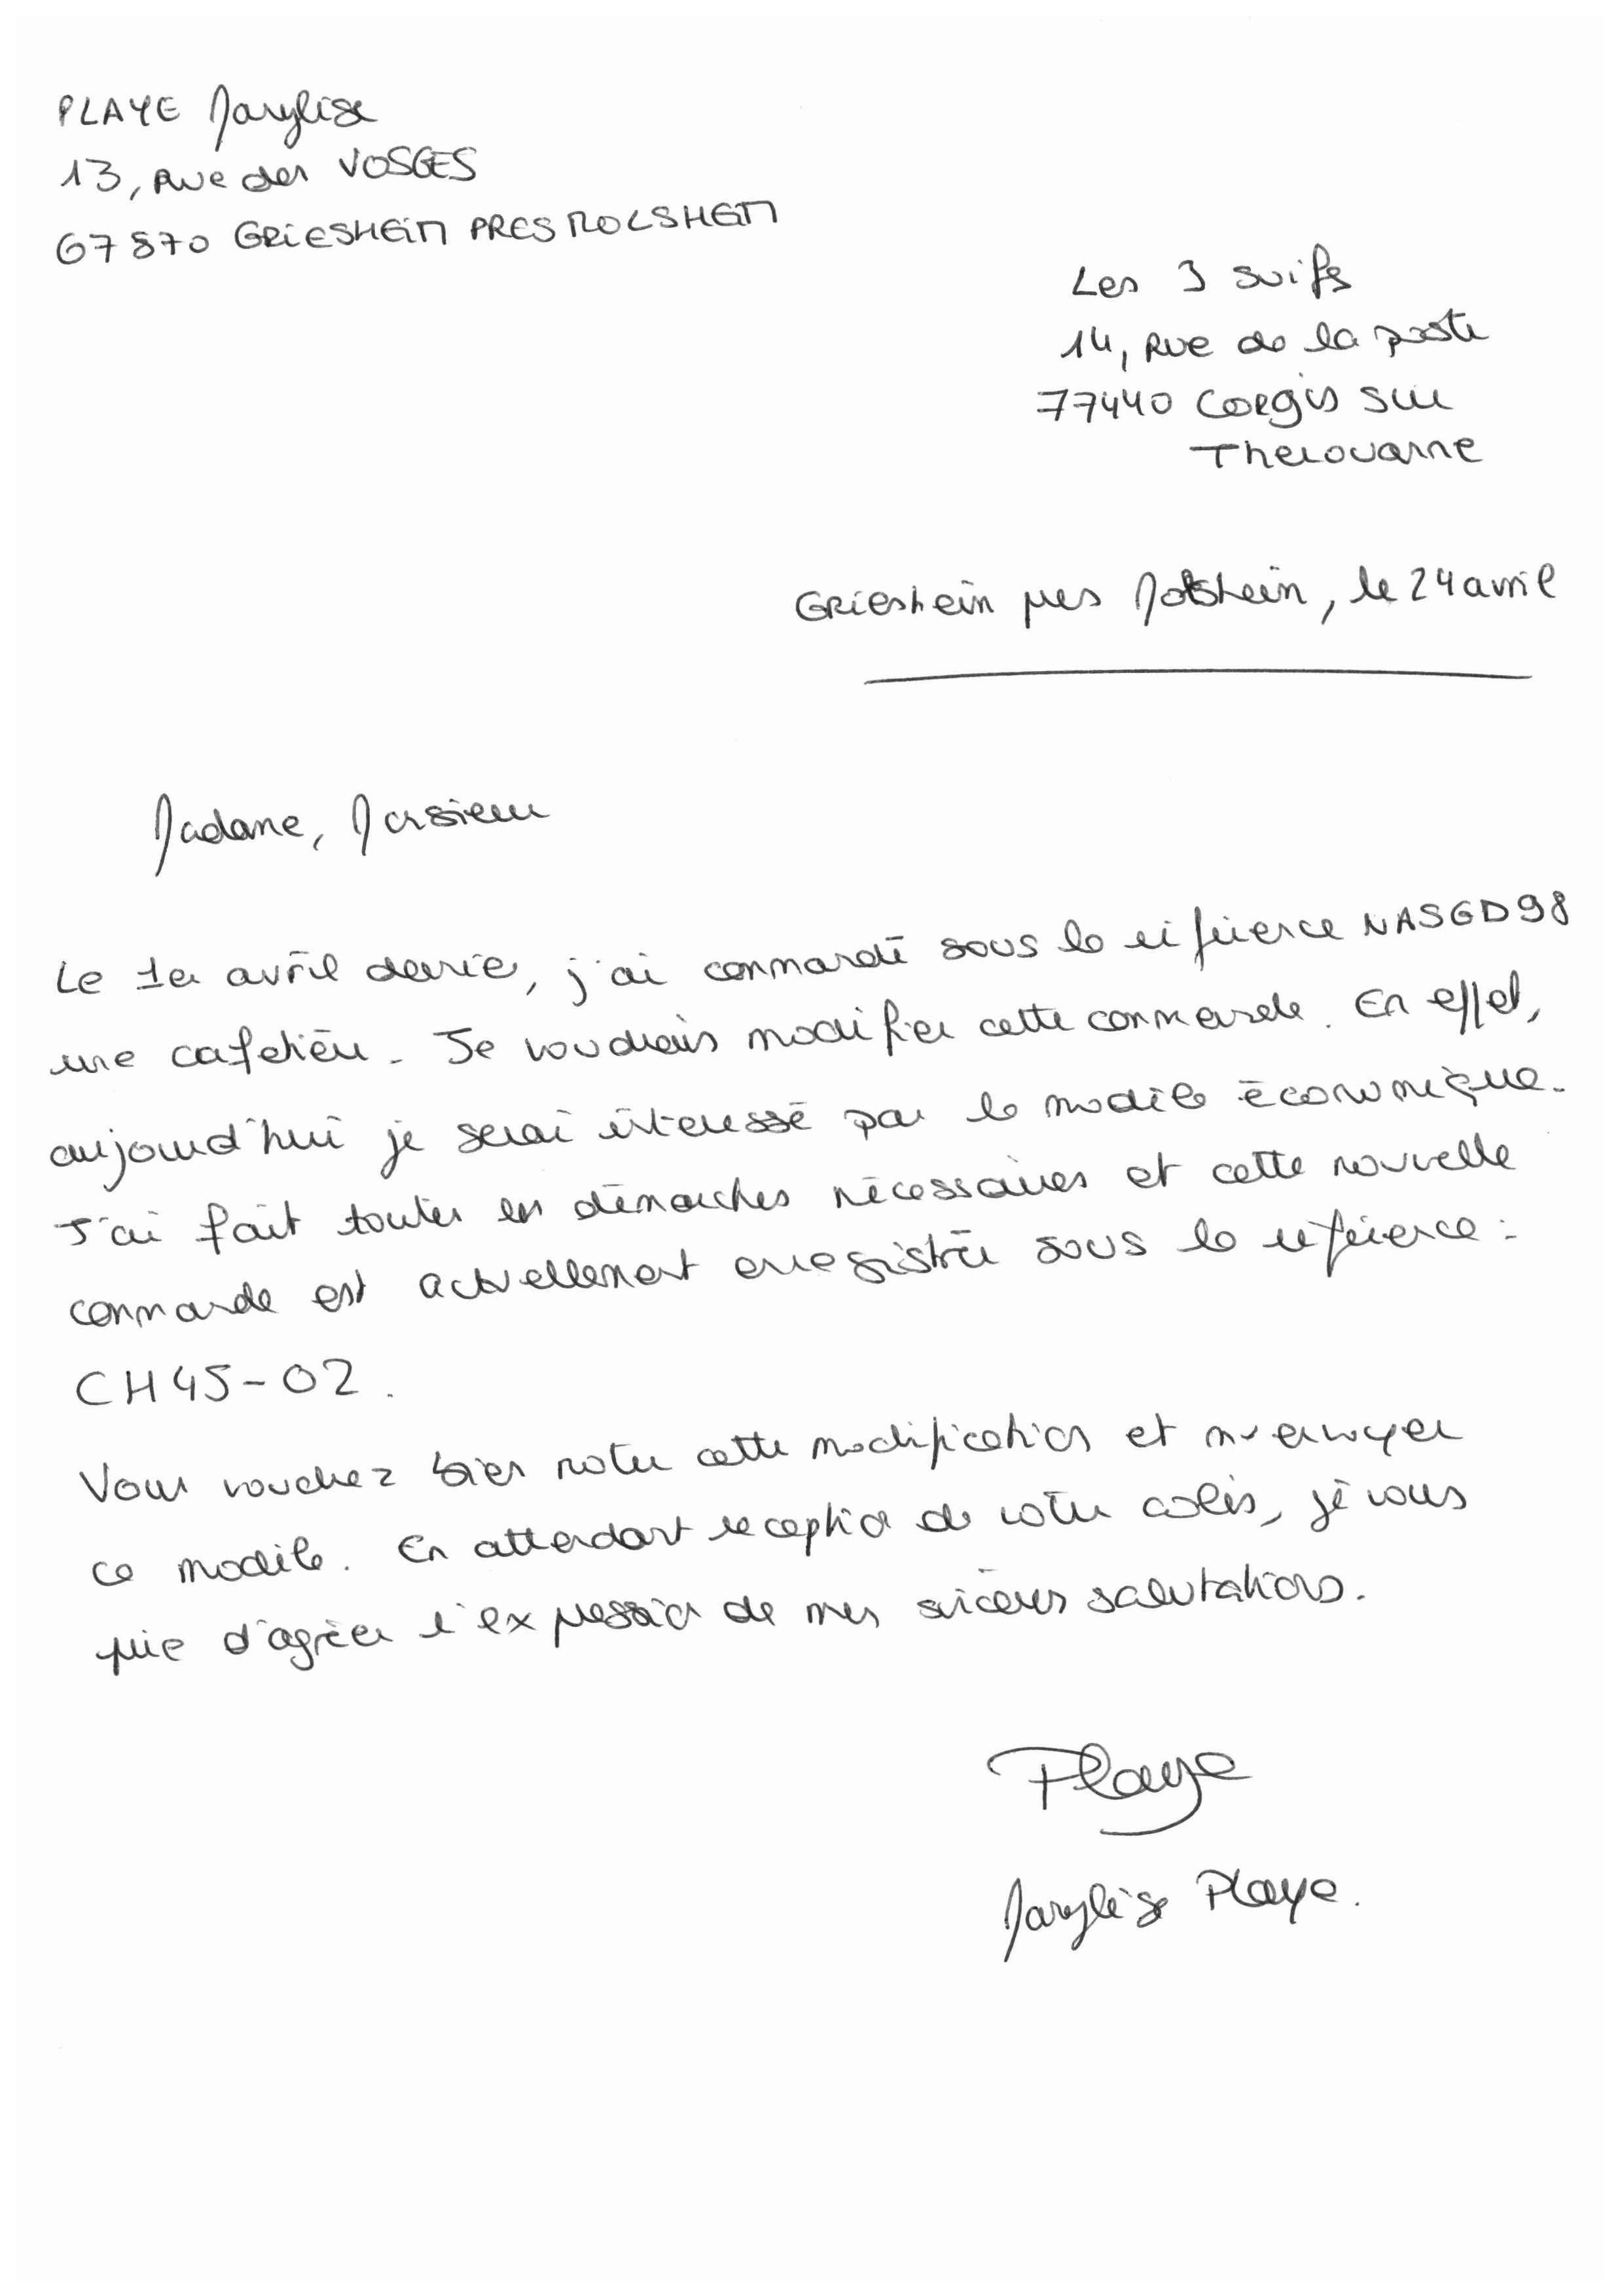 PLAYE Marylise
13, Rue des VOSGES
67870 GRIESHEIM PRES MOLSHEIM
Les 3 suifs
14, Rue de la poste
77440 Congis sur
Therouanne
Griesheim pres Molsheim, le 24 avril
Madame, Monsieur
Le 1er avril dernier, j'ai commandé sous la référence NASGD98
une cafetière. Je voudrais modifier cette commande. En effet,
aujourd'hui je serai interessé par le modèle économique.
J'ai fait toutes les démarches nécessaires et cette nouvelle
commande est actuellement enregistrée sous la référence :
CH45-02.
Vous voudrez bien noter cette modification et m'envoyer
ce modèle. En attendant reception de votre colis, je vous
prie d'agréer l'expression de mes sincères salutations.
Playe
Marylise Playe.